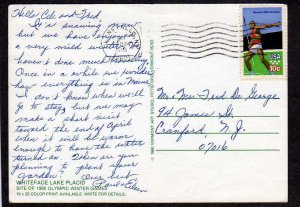 Hello Cele and Fred,
It's snowing now
but we have enjoyed
a very mild winter. We
haven't done much
Once in a while we wonder
how everything is in
I don't know when we'll
go to stay but we may
make a short visit
toward the end of April
when it will be warm
enough to have the water
turned on. Then are you
planning to plant your
Garden? Our best
WHITEFACE LAKE PLACID
SITE OF 1980 OLYMPIC WINTER GAMES
16 x 25 COLOR PRINT AVAILABLE, WRITE FOR DETAILS.
USA
10c
Mr. Mrs Fred De George
94 James St
Cranford, N.J.
07016